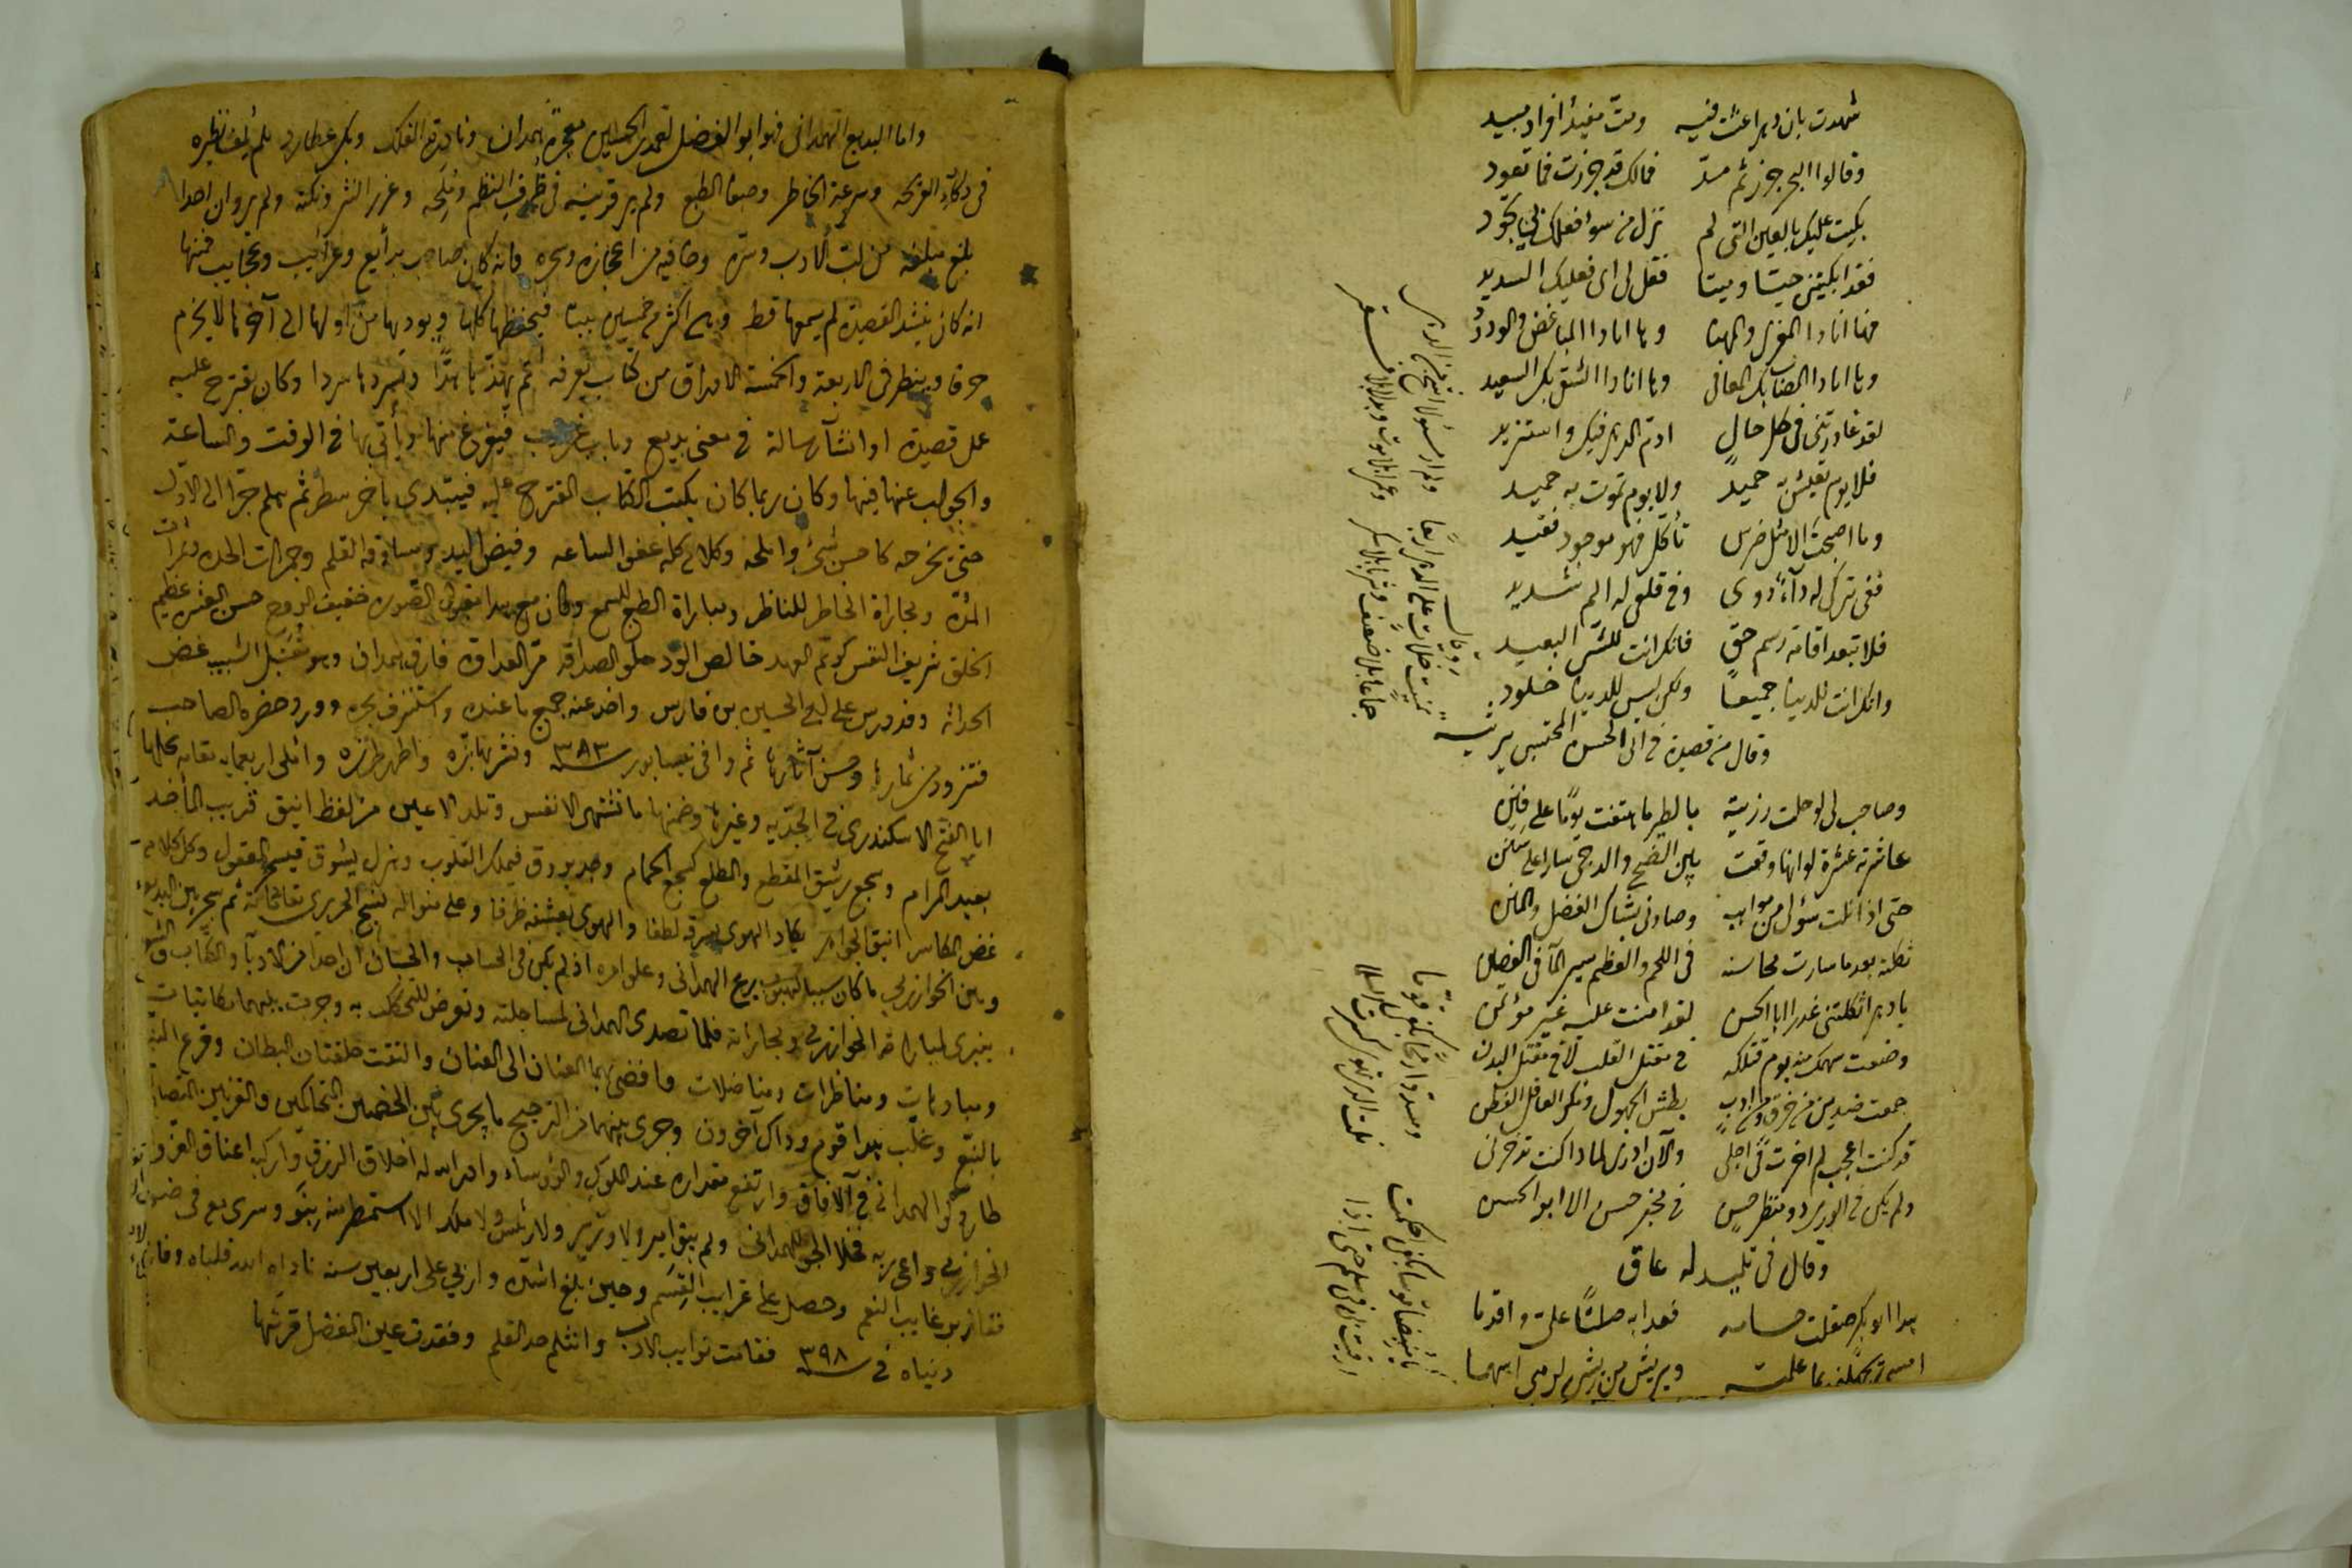 شهدت بان دهرا عشت فيه ومت مفيد افراد مبيد
وقالوا البحر جزر ثم مد فمالك قد جزرت فما تعود
بكيت عليك بالعين التي لم تزل من سوء فعلك بي تجود
فقد ابكيتني حيا وميتا فقل لي اي فعليك السديد
فها انا ذا المعزى والمهنا وها انا ذا المباغض والودود
وها انا ذا المصاب بك المعافى وها انا ذا الشقي بك السعيد
لقد غادرتني في كل حال اذم الدهر فيك واستزيد
فلا يوم تعيش به حميد ولا يوم تموت به حميد
وما اصبحت الا مثل ضرس تأكل فهو موجود فقيد
ففي تركي له داء دوي وفي قلعي له الم شديد
فلا تبعد اقامة رسم حق فانك انت للشر البعيد
وانك انت للدنيا جميعا ولكن ليس للدنيا خلود
وقال من قصيدة في ابي الحسن المحتسبي يرثيه
وصاحب لي لو حلت رزيته بالطير ما هتفت يوما على فنن
عاشرته عشرة لو انها وقعت بين الضحى والدجى سارا على سنن
حتى اذا نلت سؤلي من مواهبه وصادني بشباك الفضل والمنن
ثكلته بعد ما سارت محاسنه في اللحم والعظم سير الماء في الغصن
يا دهر اثكلتني غدرا ابا الحسن لقد امنت عليه غير مؤتمن
وضعت سهمك منه يوم قتلكه في مقتل القلب لا في مقتل البدن
جمعت ضدين من خرق ومن ادب بطش الجهول ونكر العاقل الفطن
قد كنت اعجب لم اخرت في اجلي والآن ادري لماذا كنت تذخرني
ولم يكن في الورى ذو منظر حسن في مخبر حسن الا ابو الحسن
وقال في تلميذ له عاق
هذا ابو بكر صقلت حسامه فغدا به صلتا علي واقدما
امسى يجهلني بما علمته ويريش من ريشي لرمي اسهما
يا منبضا قوسا بكفي احكمت ومسددا رمحا بكفي قوما
ارقيت بي في سلم حتى اذا نلت الذي تهوى كسرت السلما
وقال
تمنيت خلات على الدهر اربعا ولم ار مسئولا اشح من الدهر
جماعا بلا ضعف وشربا بلا سكر وعمرا بلا موت وبذلا بلا فقر
واما البديع الهمداني فهو ابو الفضل احمد بن الحسين معجزة همدان ونادرة الفلك وبكر عطارد لم يلف نظيره
في ذكاء القريحة وسرعة الخاطر وصفاء الطبع ولم ير قرينه في ظرف النظم وملحه وغرر النثر ونكته ولم يروا ان احدا
بلغ مبلغه من لب الادب وسره وجاء فيه من اعجازه وسحره فانه كان صاحب بدايع وغرائب وعجايب فمنها
انه كان ينشد القصيدة لم يسمعها قط وهي اكثر من خمسين بيتا فيحفظها كلها ويوردها من اولها الى آخرها لا يخرم
حرفا وينظر في الاربعة والخمسة الاوراق من كتاب لم يعرفه ثم يهذها هذا ويسردها سردا وكان يقترح عليه
عمل قصيدة او انشاء رسالة في معنى بديع وباب غريب فيفرغ منها ويأتي بها في الوقت والساعة
والجواب عنها فيها وكان ربما كان يكتب الكتاب المقترح عليه فيبتدي بآخر سطر ثم هلم جرا الى الاول
حتى يخرجه كاحسن شيء واملحه وكلامه كله عفو الساعه وفيض اليد ومساوقة القلم وجمرات الحدة وثمرات
المدة ومجاراة الخاطر للناظر ومباراة الطبع للسمع وكان مع هذا مقبول الصورة خفيف الروح حسن العشرة عظيم
الخلق شريف النفس كريم العهد خالص الود حلو الصداقة مر العداوة فارق همدان وهو مقتبل الشبيب غض
الحداثة وقد درس على ابي الحسين بن فارس واخذ عنه جميع ما عنده واستنزف بحره وورد حضرة الصاحب
فتزود من ثمارها وحسن آثارها ثم وافى نيسابور سنة ٣٨٣ ونشر بها بزه واظهر طرزه واملى اربعماية مقامة نحلها
ابا الفتح الاسكندري في الكدية وغيرها وضمنها ما تشتهي الانفس وتلذ الاعين من لفظ انيق قريب المأخذ
بعيد المرام وسجع رشيق المقطع والمطلع كسجع الحمام وجد يروق فيملك القلوب وهزل يشوق فيسحر العقول وكل كلامه
غض المكاسر انيق الجواهر يكاد الهوى يسرقه لطفا والهوى يعشقه ظرفا وعلى منواله نسج الحريري مقاماته ثم شجر بين البديع
وبين الخوارزمي ما كان سببا لهبوب ريح الهمداني وعلو امره اذ لم يكن في الحساب والحسبان ان احدا من الادباء والكتاب والشعراء
ينبري لمباراة الخوارزمي ومجاراته فلما تصدى الهمداني لمساجلته وتعرض للتحكك به وجرت بينهما مكاتبات
ومباهات ومناظرات ومناضلات وافضى بهما العنان الى العنان والتقت حلقتان البطان وقرع النبع
بالنبع وغلب هذا قوم وذاك آخرون وجرى بينهما من الترجيح ما يجري بين الخصمين المتحاكمين والقرنين المتصاولين
طار ذكر الهمداني في الآفاق وارتفع مقداره عند الملوك والرؤساء وادر الله له اخلاف الرزق واركبه اعناق العز
الخوارزمي داعي ربه فخلا الجو للهمداني ولم يبق امير ولا وزير ولا رئيس ولا ملك الا استمطر منه بنوء وسرى معه في ضوء
ففاز برغايب النعم وحصل على غرايب القسم وحين بلغ اشده واربى على اربعين سنة ناداه الله فلباه وفارق
دنياه في سنة ٣٩٨ فقامت نوادب الادب وانثلم حد القلم وفقدت عين الفضل قرتها